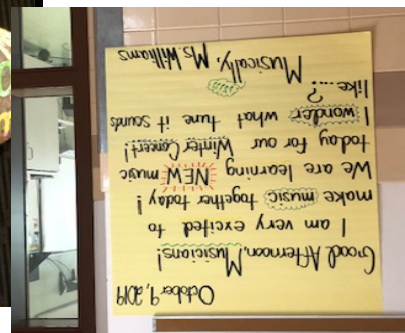 October 9, 2019
Good Afternoon, Musicians!
I am very excited to
make music together today!
We are learning NEW music
today for our Winter Concert!
I wonder what tune it sounds
like...?
Musically, Ms. Williams